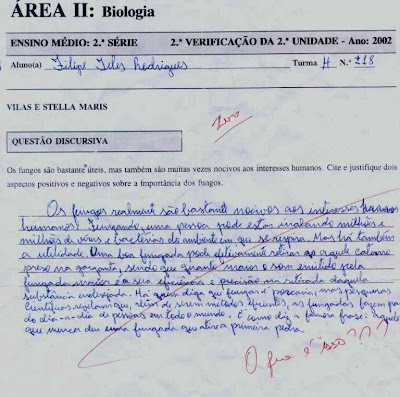 ÁREA II: Biologia
ENSINO MÉDIO: 2.ª SÉRIE 2.ª VERIFICAÇÃO DA 2.ª UNIDADE - Ano: 2002
Aluno(a) Filipe Teles Rodrigues Turma H N.º 718
VILAS E STELLA MARIS
Zero
QUESTÃO DISCURSIVA
Os fungos são bastante úteis, mas também são muitas vezes nocivos aos interesses humanos. Cite e justifique dois
aspectos positivos e negativos sobre a importância dos fungos.
Os fungos realmente são bastante nocivos aos interesses
humanos. Fungando, uma pessoa pode estar inalando milhões e
milhões de vírus e bactérias do ambiente em que se respira. Mas há também
a utilidade. Uma boa fungada pode efetivamente retirar aquele catarro
preso na garganta, sendo que quanto maior o som emitido pela
fungada maior é a sua eficiência e precisão na retirada daquela
substância indesejada. Há quem diga que fungar é porcaria, mas pesquisas
científicas revelam que, além de serem métodos eficientes, as fungadas fazem parte
do dia-a-dia de pessoas em todo o mundo. É como diz a famosa frase: aquele
que nunca deu uma fungada que atire a primeira pedra.
O que é isso???